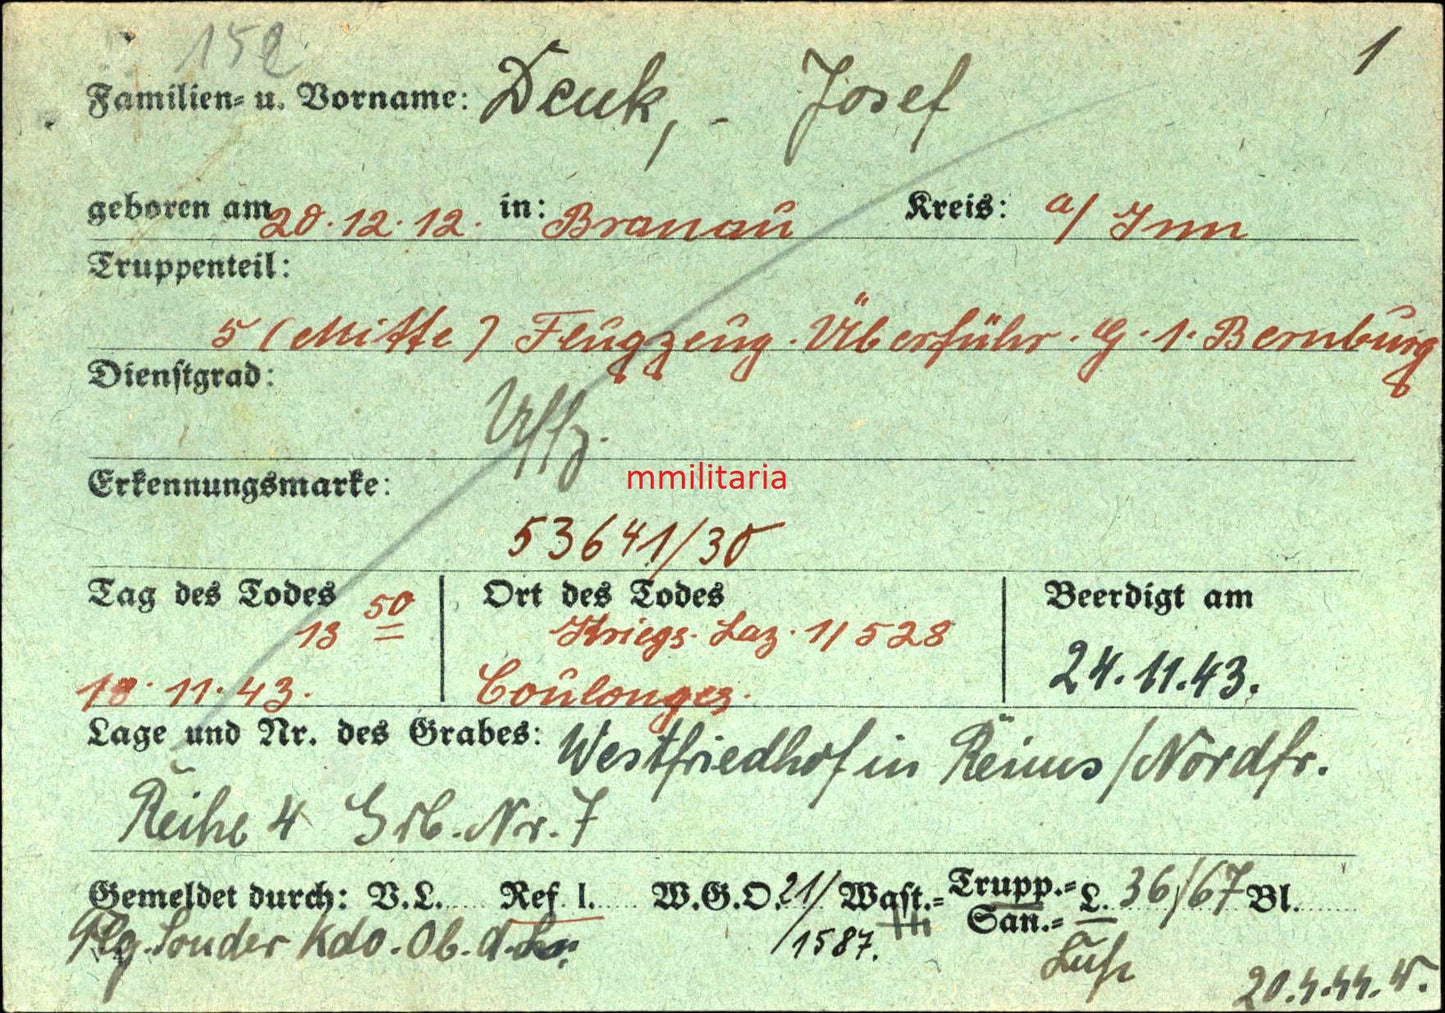 152
1
Familien- u. Vorname: Denk, - Josef
geboren am 20.12.12. in: Branau Kreis: a/ Inn
Truppenteil:
5 (Mitte) Flugzeug. Überführ. G. 1. Bernburg
Dienstgrad:
Uffz.
Erkennungsmarke:
mmilitaria
53641/30
Tag des Todes Ort des Todes Beerdigt am
13 50 Kriegs. Laz. 1/528
18.11.43. Coulonges. 24.11.43.
Lage und Nr. des Grabes: Westfriedhof in Reims/Nordfr.
Reihe 4 Grb. Nr. 7
Gemeldet durch: V.L. Ref. 1. W.G.O. 21/ Wast.- Trupp.- L. 36/67 Bl.
San.-
Flg. Sonder Kdo. Ob. d. 1587.
Lufs
20.4.44. W.